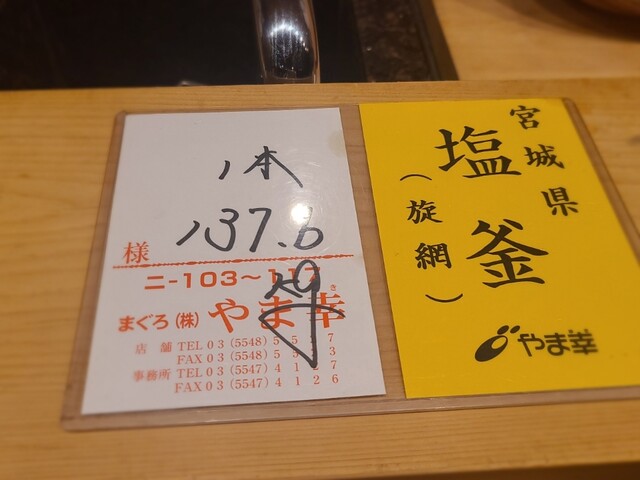 1本
137.6
様
二-103～117
まぐろ（株）やま幸
店舗 TEL 03 (5548) 5
FAX 03 (5548) 5
事務所 TEL 03 (5547) 4127
FAX 03 (5547) 4126
宮城県
塩釜
（旋網）
やま幸